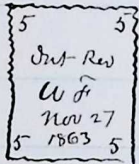 5 5
Int Rev
W F
Nov 27
1863
5 5